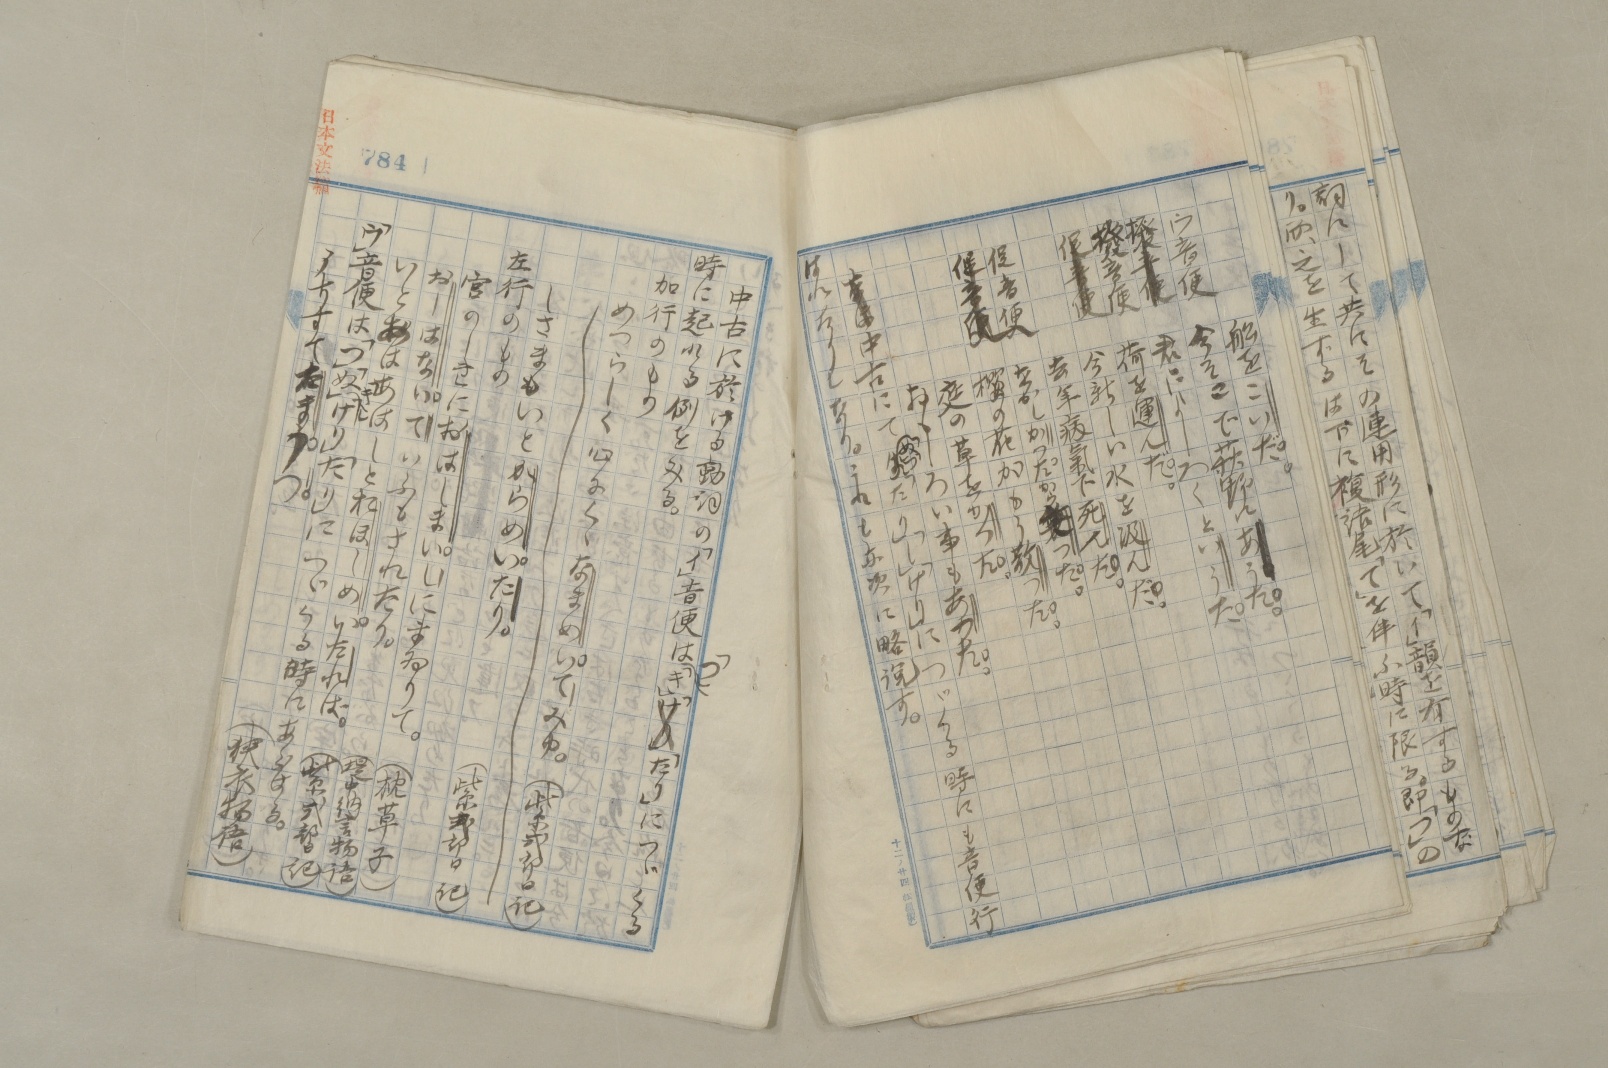 詞にして共にその連用形に於いて「イ」韻を有するものな
り。而、之を生ずるは下に複語尾「て」を伴ふ時に限る。即「つ」の
船をこいだ。
今そこで萩野にあうた。
ウ音便
君によーつくというた。
撥音便
荷を運んだ。
撥音便
今新しい水を汲んだ。
促音便
去年病氣で死んだ。
なかしかつたから
つた。
促音便
櫻の花がもう散つた。
促音便
庭の草をかつた。
おもしろい事もあつた。
中古にて「たり」「けり」につづくる時にも音便行
はれたりしなり。これも亦次に略説す。
中古に於ける動詞の「イ」音便は「つ」「き」「たり」につづくる
時に起れる例をみる。
加行のもの
めつらしく心ふくなまめいてみゆ。
(紫式部日記)
しさまもいとからめいたり。
左行のもの
宮のしきにおはしまいしにまゐりて。
(紫式部日記)
おしはないていふもされたり。
(枕草子)
いとあはあはしとねほしめいたれば。
(堤中納言物語)
「ウ」音便は「つ」「ぬ」「き」「けり」「たり」につづくる時にあらはる。
(紫式部日記)
うちすてたまうつ。
(狭衣物語)
784
日本文法